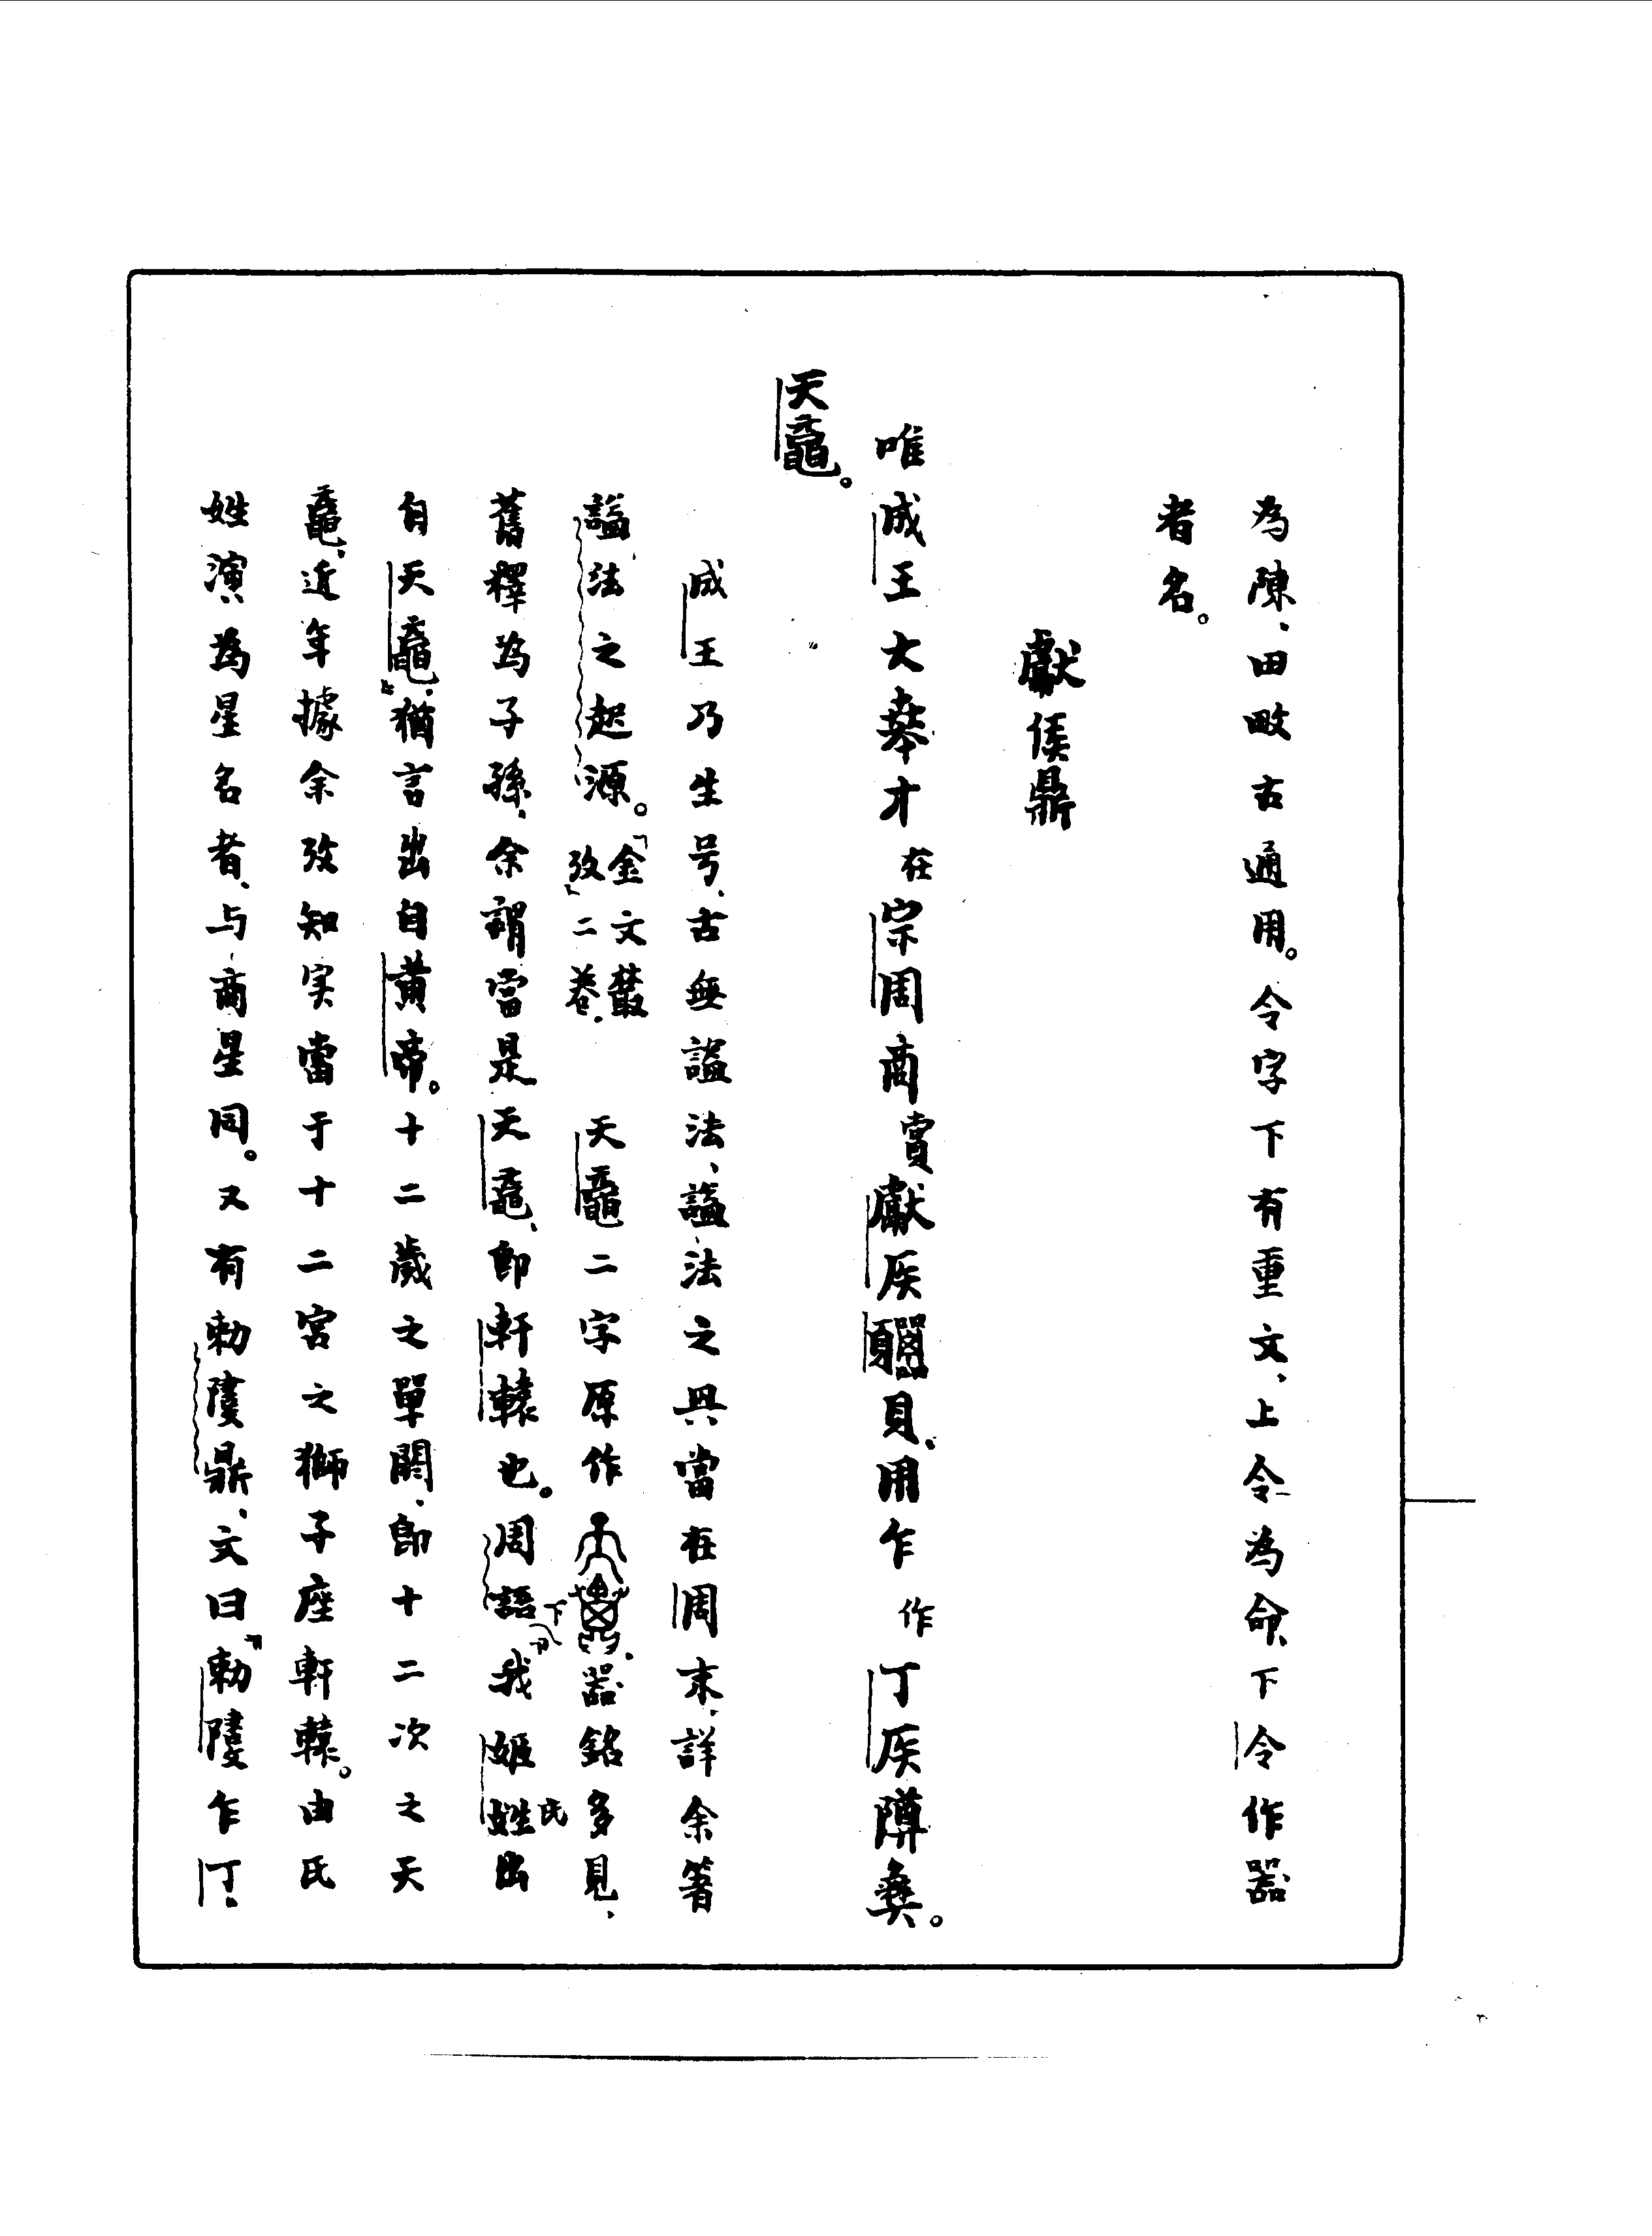 為陳、田畋古通用。令字下有重文、上令為命、下令作器
者名。
獻侯鼎
唯成王大𠦪才在宗周商賞獻𥎦貝、用乍作丁𥎦𨽛彝。
天黿。
成王乃生号、古無謚法、謚法之興當在周末、詳余著
謚法之起源。「金文叢攷」二卷、天黿二字原作、器銘多見、
舊釋為子孫、余謂當是天黿、即軒轅也。周語下「我姬姓氏出
自天黿」、猶言出自黃帝。十二歲之單閼、即十二次之天
黿、近年據余攷知实當于十二宮之獅子座軒轅。由氏
姓演為星名者、与商星同。又有勅𨻻鼎、文曰「勅𨻻乍丁、